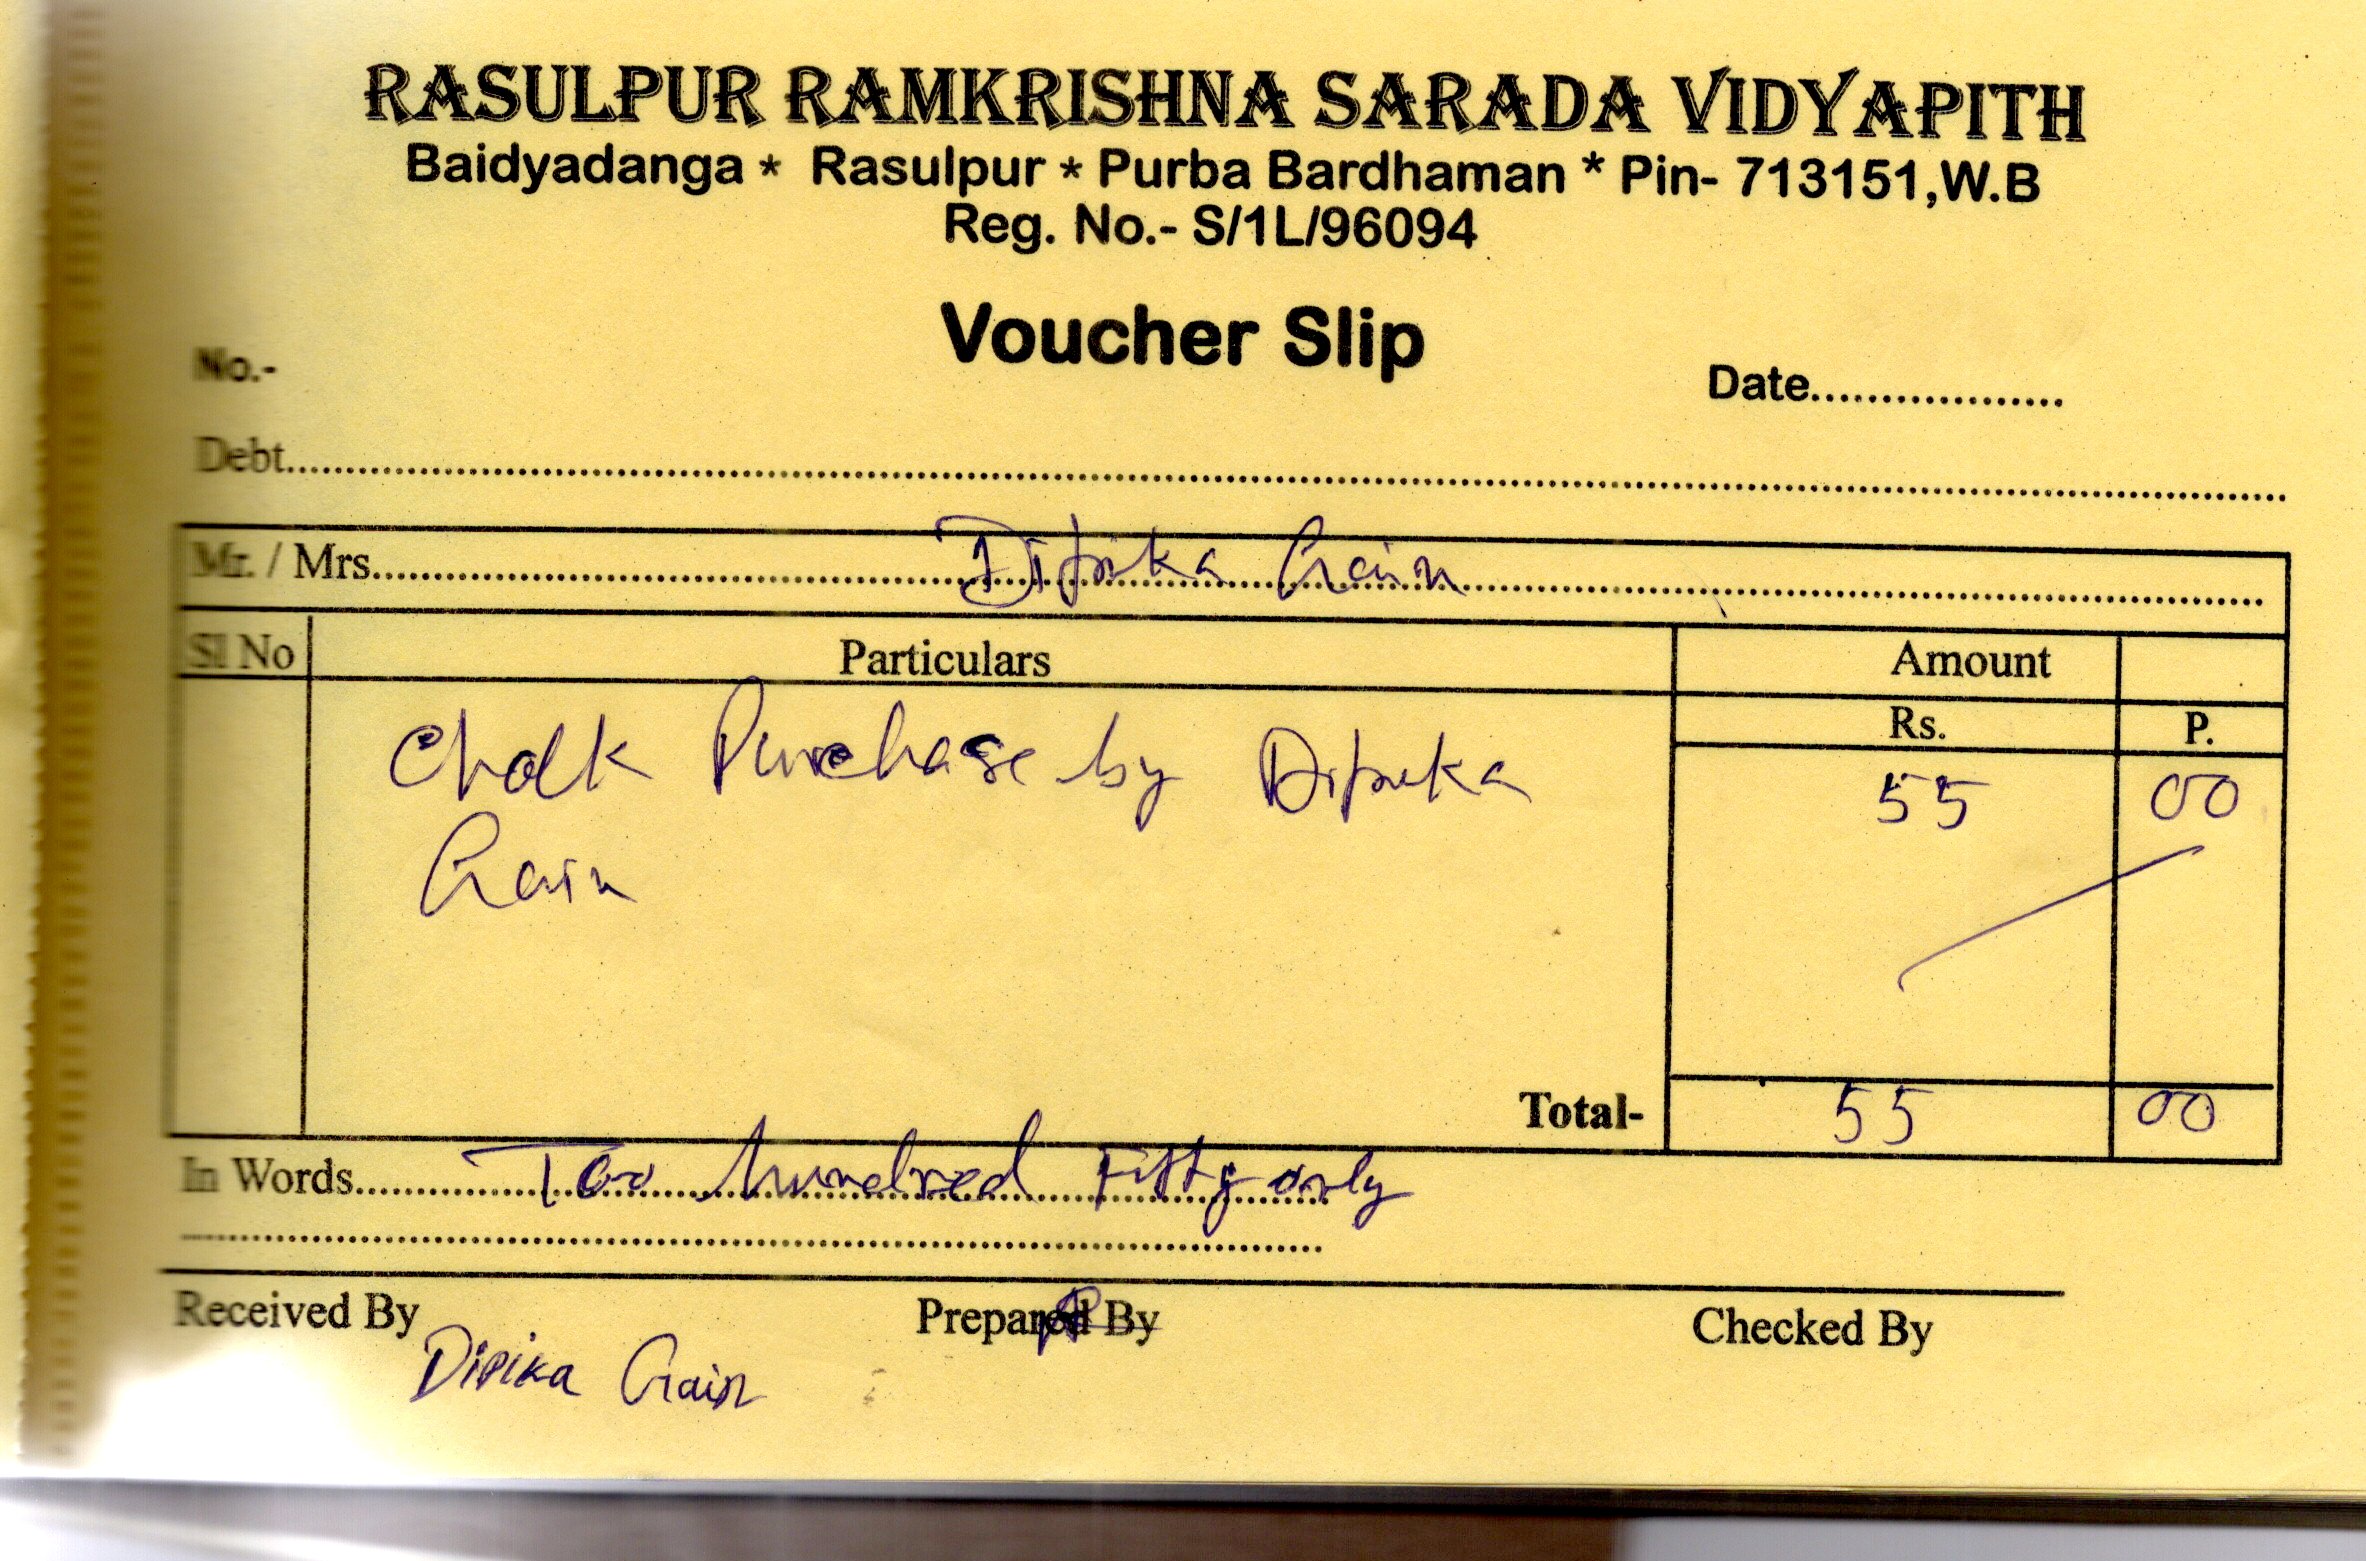 RASULPUR RAMKRISHNA SARADA VIDYAPITH
Baidyadanga * Rasulpur * Purba Bardhaman * Pin- 713151,W.B
Reg. No.- S/1L/96094
Voucher Slip
No.-
Date..................
Debt..........................................................................
Mr. / Mrs. Dipika Gain
Sl No Particulars Amount
Rs. P.
Chalk Purchase by Dipika 55 00
Gain
Total- 55 00
In Words. Two hundred Fifty only
Received By Prepared By Checked By
Dipika Gain